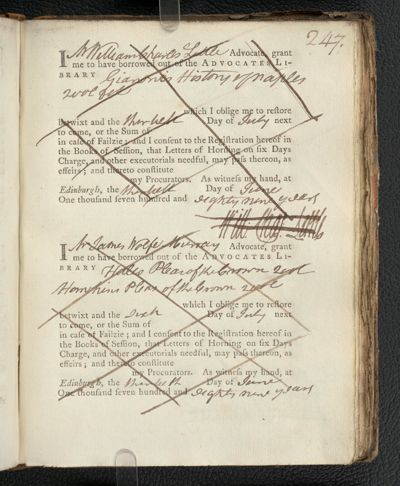 247.
I Mr William Charles Little Advocate, grant
me to have borrowed out of the ADVOCATES LI-
BRARY Gianonis History of Naples
2 vol
which I oblige me to restore
betwixt and the Day of July next
to come, or the Sum of
in case of Failzie; and I consent to the Registration hereof in
the Books of Session, that Letters of Horning on six Days
Charge, and other executorials needful, may pass thereon, as
effeirs; and thereto constitute
my Procurators. As witness my hand, at
Edinburgh, the Day of June
One thousand seven hundred and eighty nine years
Will: Chas: Little
I Mr James Wolfe Murray Advocate, grant
me to have borrowed out of the ADVOCATES LI-
BRARY Hales Pleas of the Crown 2 vol
Hawkins Pleas of the Crown 2 vol
which I oblige me to restore
betwixt and the Day of July next
to come, or the Sum of
in case of Failzie; and I consent to the Registration hereof in
the Books of Session, that Letters of Horning on six Days
Charge, and other executorials needful, may pass thereon, as
effeirs; and thereto constitute
my Procurators. As witness my hand, at
Edinburgh, the Day of June
One thousand seven hundred and eighty nine years